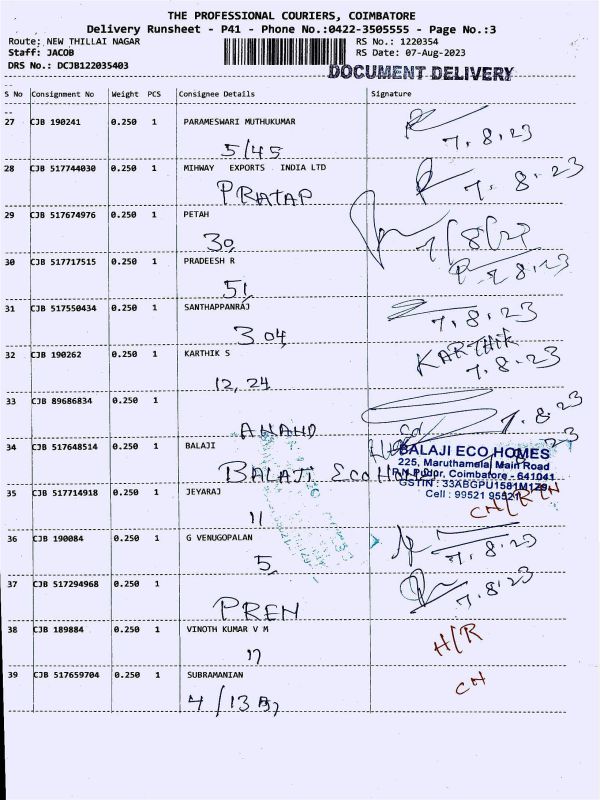 THE PROFESSIONAL COURIERS, COIMBATORE
Delivery Runsheet - P41 - Phone No.:0422-3505555 - Page No.:3
Route: NEW THILLAI NAGAR RS No.: 1220354
Staff: JACOB RS Date: 07-Aug-2023
DRS No.: DCJB122035403
DOCUMENT DELIVERY
S No Consignment No Weight PCS Consignee Details Signature
27 CJB 190241 0.250 1 PARAMESWARI MUTHUKUMAR
5/45 7.8.23
28 CJB 517744030 0.250 1 MIHWAY EXPORTS INDIA LTD
PRATAP 7.8.23
29 CJB 517674976 0.250 1 PETAH
30
30 CJB 517717515 0.250 1 PRADEESH R
51 7.8.23
31 CJB 517550434 0.250 1 SANTHAPPANRAJ
304 7.8.23
32 CJB 190262 0.250 1 KARTHIK S KARTHIK
12, 24 7.8.23
33 CJB 89686834 0.250 1
ANAND 7.8.23
34 CJB 517648514 0.250 1 BALAJI
BALAJI Eco
BALAJI ECO HOMES
225, Maruthamalai Main Road
Coimbatore - 641041
GSTIN : 33ABGPU1581M1Z9
Cell : 99521 95521
35 CJB 517714918 0.250 1 JEYARAJ
11
36 CJB 190084 0.250 1 G VENUGOPALAN
5 7.8.23
37 CJB 517294968 0.250 1
PREM 7.8.23
38 CJB 189884 0.250 1 VINOTH KUMAR V M H/R
17
39 CJB 517659704 0.250 1 SUBRAMANIAN CH
4/13